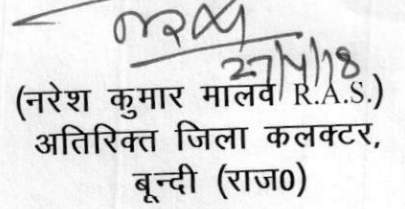 नरेश
27/4/18
(नरेश कुमार मालव R.A.S.)
अतिरिक्त जिला कलक्टर,
बून्दी (राज0)